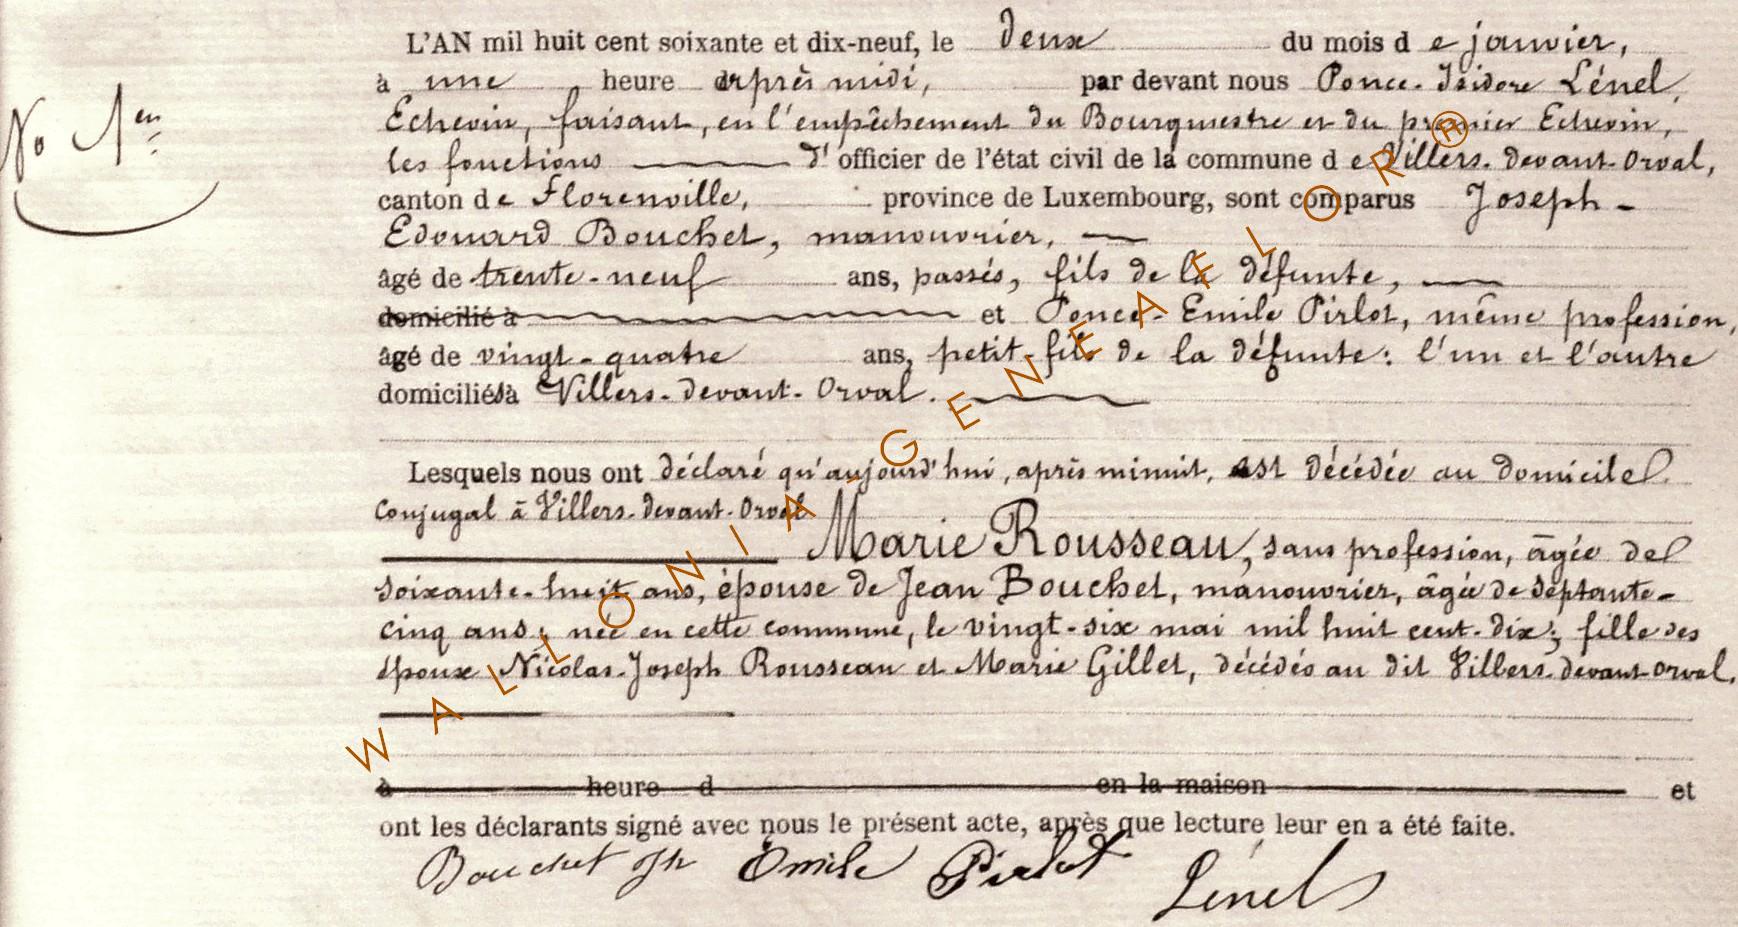 L'AN mil huit cent soixante et dix-neuf, le deux du mois de janvier,
à une heure après midi, par devant nous Ponce-Isidore Lénel,
No 1er
Echevin, faisant, en l'empêchement du Bourgmestre et du premier Echevin,
les fonctions d'officier de l'état civil de la commune de Villers-devant-Orval,
canton de Florenville, province de Luxembourg, sont comparus Joseph-
Edouard Bouchet, manouvrier,
âgé de trente-neuf ans, passés, fils de la défunte,
domicilié à et Ponce-Emile Pirlot, même profession,
âgé de vingt-quatre ans, petit-fils de la défunte: l'un et l'autre
domiciliés à Villers-devant-Orval.
Lesquels nous ont déclaré qu'aujourd'hui, après minuit, est décédée au domicile
conjugal à Villers-devant-Orval
Marie Rousseau, sans profession, âgée de
soixante-huit ans, épouse de Jean Bouchet, manouvrier, âgée de septante-
cinq ans; née en cette commune, le vingt-six mai mil huit cent-dix; fille des
époux Nicolas-Joseph Rousseau et Marie Gillet, décédés au dit Villers-devant-Orval.
à heure d en la maison et
ont les déclarants signé avec nous le présent acte, après que lecture leur en a été faite.
Bouchet Jph Emile Pirlot
Lénel
WALLONIA-GENEAFLOR®